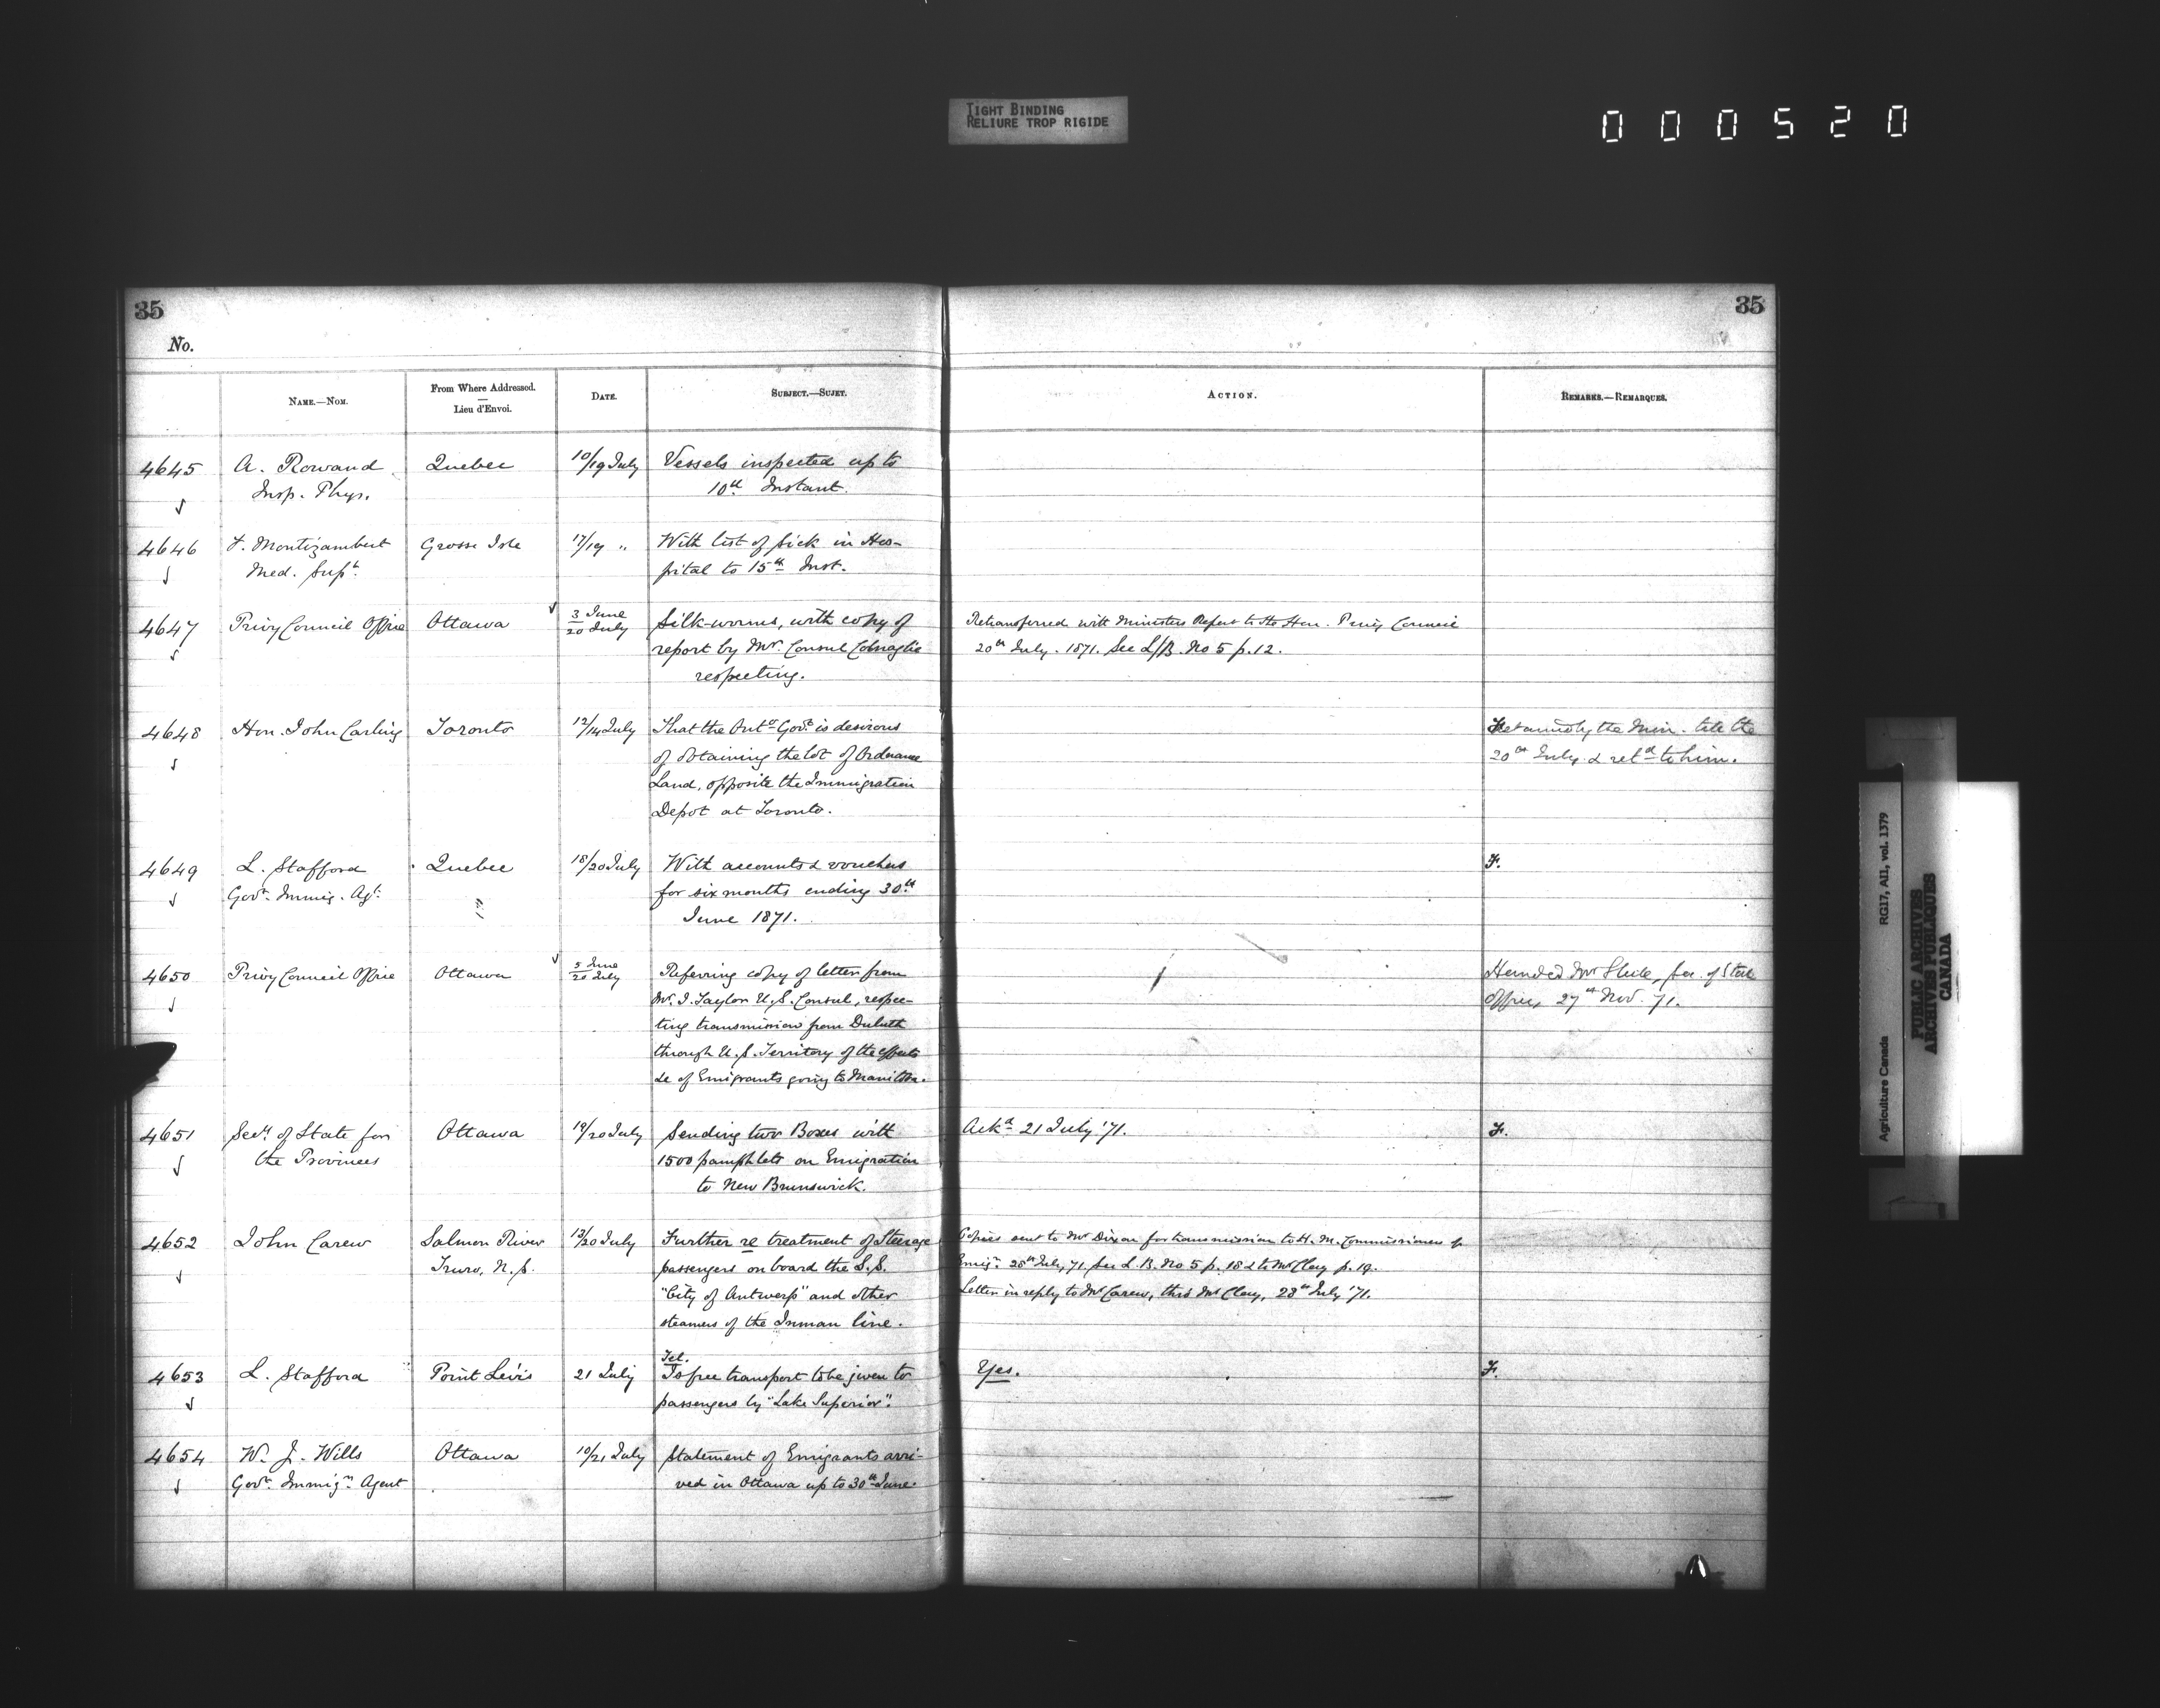 TIGHT BINDING
RELIURE TROP RIGIDE
000520
35
35
No.
NAME.—NOM.
From Where Addressed.
—
Lieu d'Envoi.
DATE.
SUBJECT.—SUJET.
ACTION.
REMARKS.—REMARQUES.
4645 A. Rowand Quebec 10/19 July Vessels inspected up to
Insp. Phys. 10th Instant.
4646 F. Montizambert Grosse Isle 17/19 " With list of sick in Hos-
Med. Supt. pital to 15th Inst.
4647 Privy Council Office Ottawa 3 June
20 July Silk-worms, with copy of Retransferred with Ministers Report to the Hon. Privy Council
report by Mr. Consul Colnaghi 20th July. 1871. See L/B. No 5 p. 12.
respecting.
4648 Hon. John Carling Toronto 12/14 July That the Onto Govt. is desirous Retained by the Min. till the
of obtaining the lot of Ordnance 20th July. & retd to him.
Land, opposite the Immigration
Depot at Toronto.
4649 L. Stafford Quebec 18/20 July With accounts & vouchers F.
Govt. Immig. Agt. for six months ending 30th
June 1871.
4650 Privy Council Office Ottawa 5 June
20 July Referring copy of letter from Handed Mr Sec. of State
Mr. J. Taylor U.S. Consul, respec- Office, 27th Nov. 71.
ting transmission from Duluth
through U.S. Territory of the effects
&c of Emigrants going to Manitoba.
4651 Secy. of State for Ottawa 19/20 July Sending two Boxes with Ackd 21 July '71. F.
the Provinces 1500 pamphlets on Emigration
to New Brunswick.
4652 John Carew Salmon River 13/20 July Further re treatment of Steerage Copies sent to Mr Dixon for transmission to H. M. Commissioners of
Truro, N.S. passengers on board the S.S. Emign. 28th July, 71. See L. B. No 5 p. 18 & to McClay p. 19.
"City of Antwerp" and other Letter in reply to Mr Carew, thro Mr Clay, 28th July '71.
steamers of the Inman line.
Tel.
4653 L. Stafford Point Lévis 21 July Is free transport to be given to Yes. F.
passengers by "Lake Superior".
4654 W. J. Wills Ottawa 19/21 July Statement of Emigrants arri-
Govt. Immign. Agent ved in Ottawa up to 30th June.
Agriculture Canada RG17, AII, vol. 1379
PUBLIC ARCHIVES
ARCHIVES PUBLIQUES
CANADA